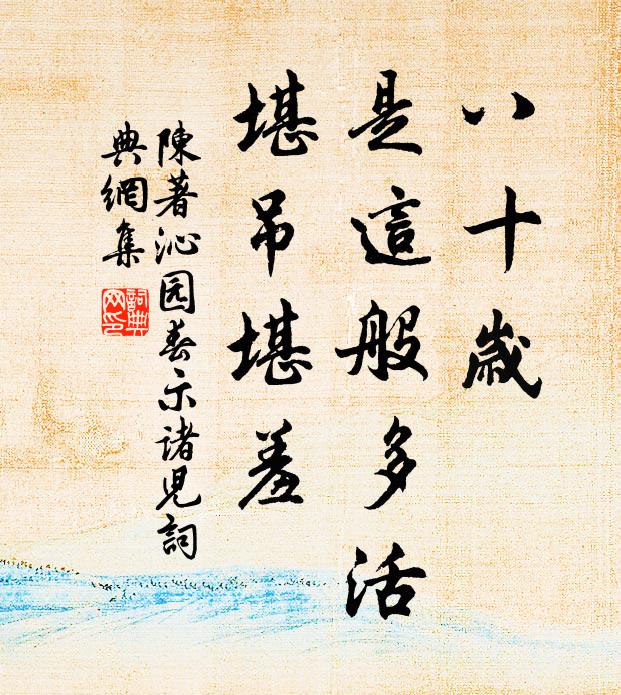 八十歲
是這般多活
堪吊堪羞
陳著沁园春示诸児詞
典網集
詞典
网印